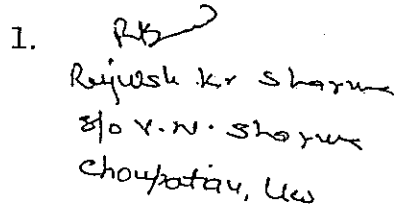 1.
Rajesh kr Sharma
S/o Y.N. Sharma
Choupatian, Lko